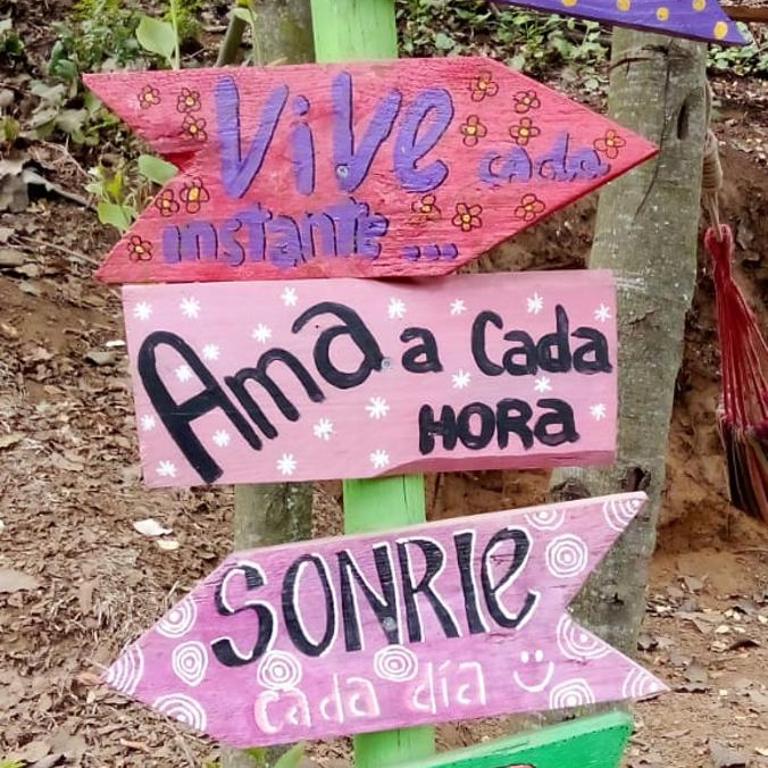 Vive cada
instante...
Ama a Cada
HORA
SONRIE
cada día